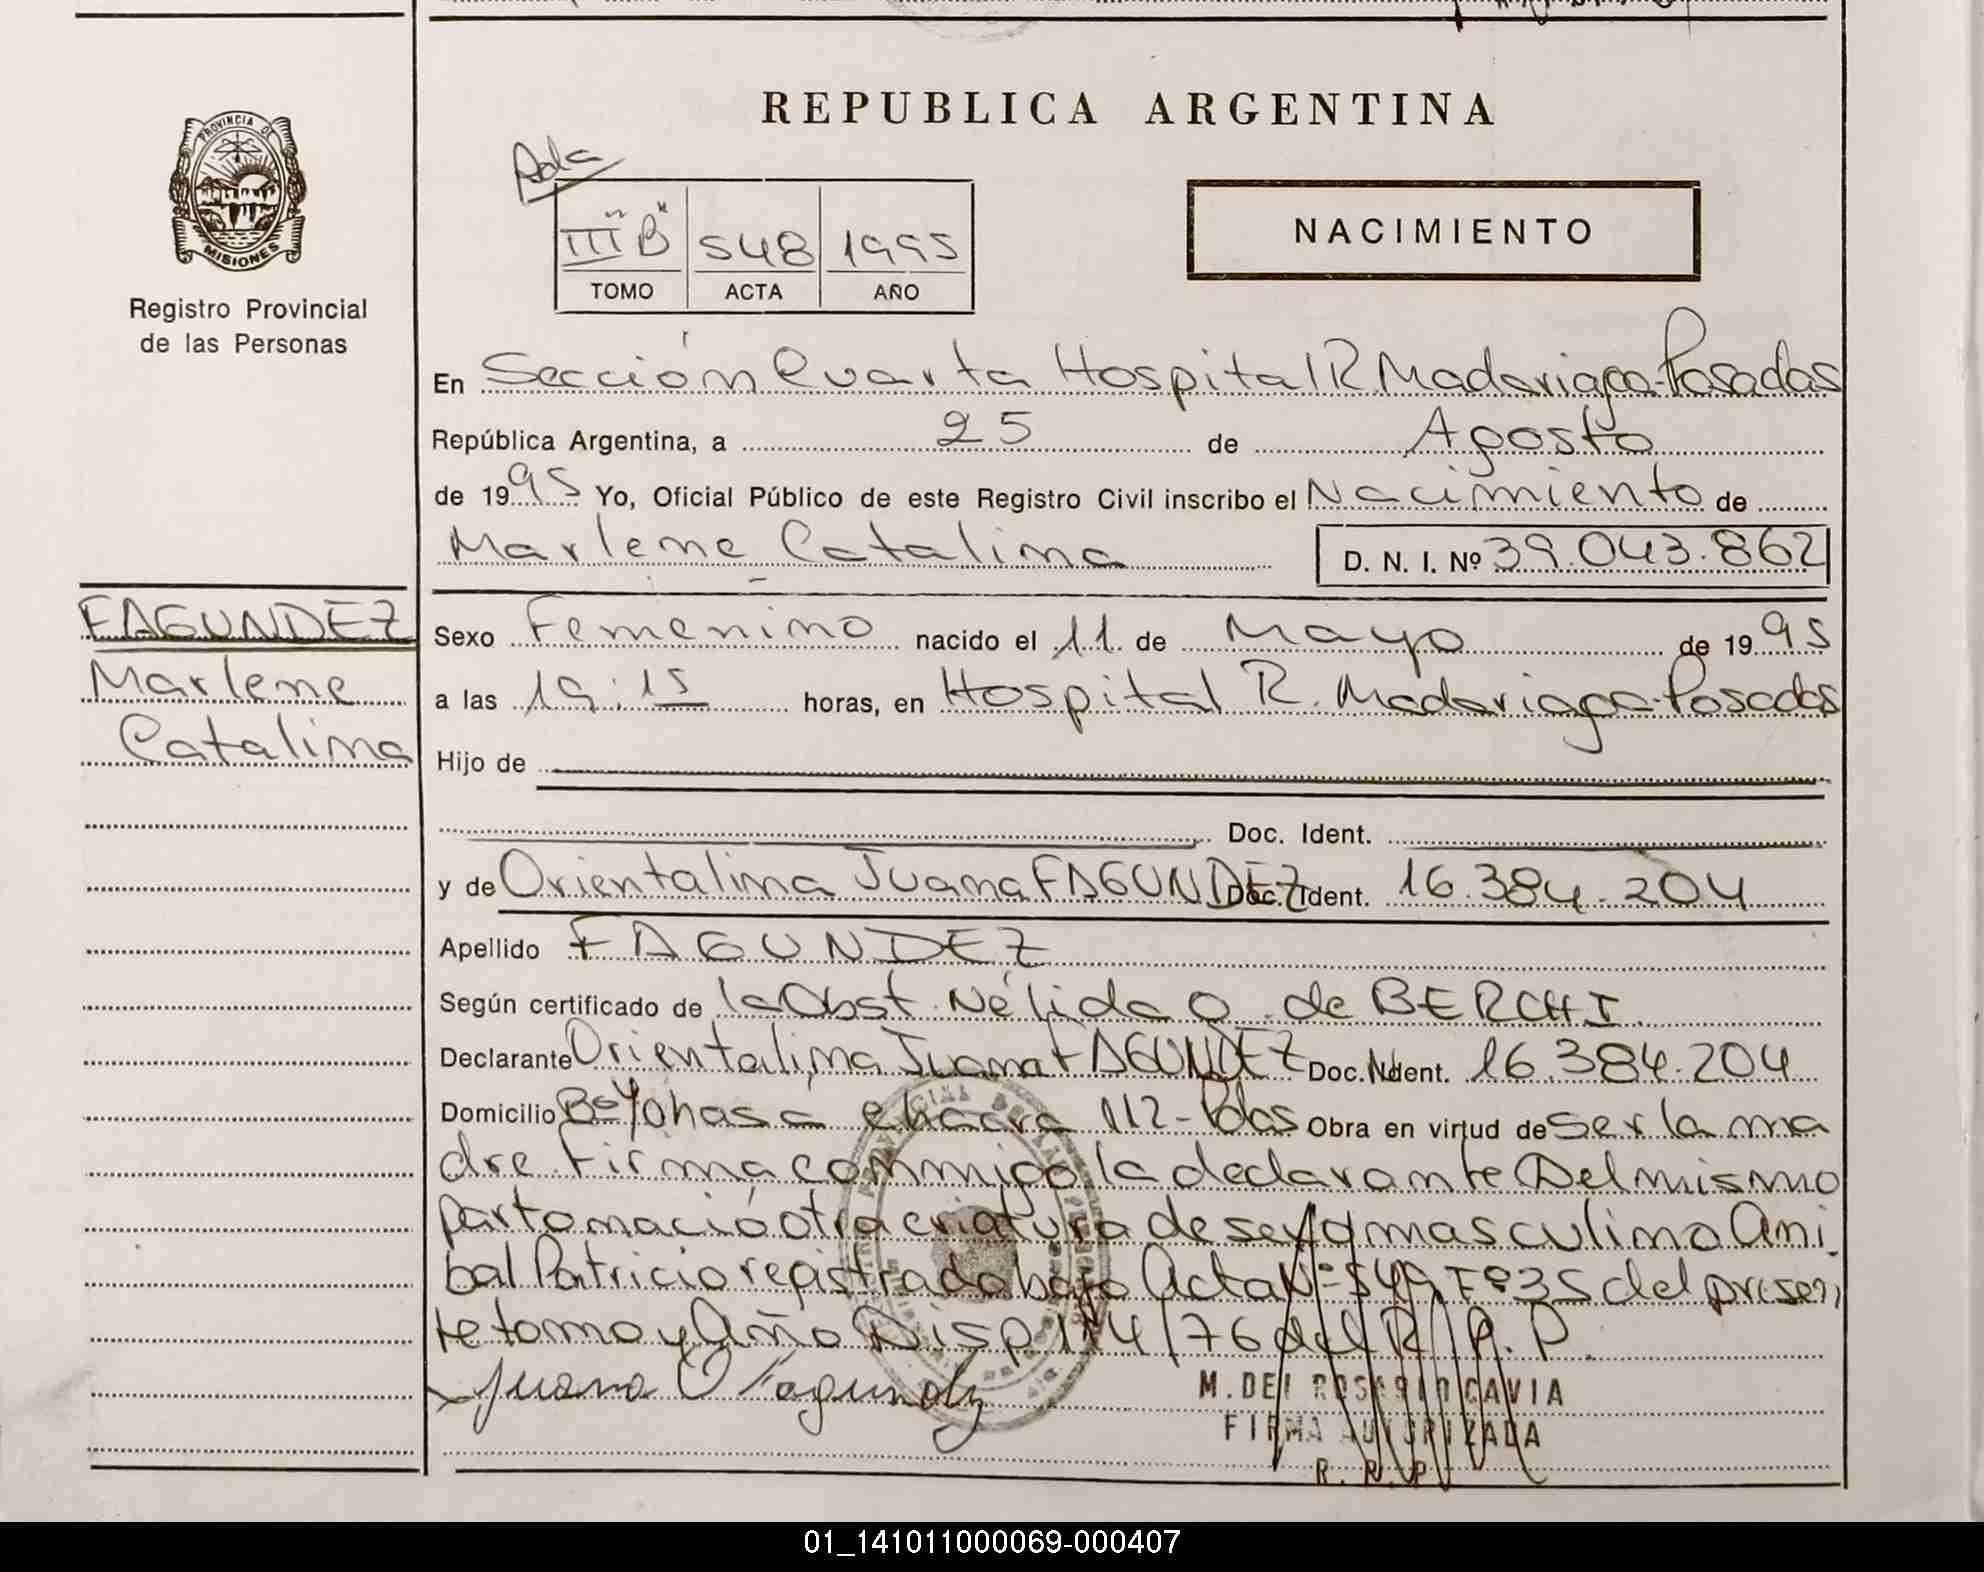 REPUBLICA ARGENTINA
PROVINCIA DE
MISIONES
Registro Provincial
de las Personas
Pda
III "B" 548 1995
TOMO ACTA AÑO
NACIMIENTO
En Sección Cuarta Hospital R. Madariaga-Posadas
República Argentina, a 25 de Agosto
de 1995 Yo, Oficial Público de este Registro Civil inscribo el Nacimiento de
Marlene Catalina D. N. I. Nº 39.043.862
FAGUNDEZ
Marlene
Catalina
Sexo Femenino nacido el 11 de Mayo de 1995
a las 19:15 horas, en Hospital R. Madariaga-Posadas
Hijo de
Doc. Ident.
y de Orientalina Juana FAGUNDEZ Doc. Ident. 16.384.204
Apellido FAGUNDEZ
Según certificado de la Obst. Nélida O. de BERCHI
Declarante Orientalina Juana FAGUNDEZ Doc. Ident. 16.384.204
Domicilio Bº Yohasa chacra 112-Pdas Obra en virtud de ser la ma
dre Firma conmigo la declarante Del mismo
parto nació otra criatura de sexo masculino Ani
bal Patricio registrado bajo Acta Nº 549 Fº 35 del presen
te tomo y Año Disp. 114/76 del R. P. P.
Juana O Fagundez
M. DEL ROSARIO CAVIA
FIRMA AUTORIZADA
R. P. P.
01_141011000069-000407